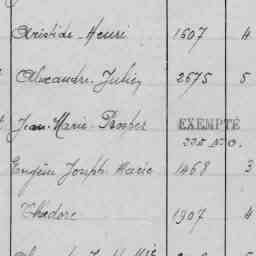 Aristide Henri 1607 4
Alexandre Julien 2675 5
Jean Marie Prosper EXEMPTÉ
Eugène Joseph Marie 1468 3
Théodore 1907 4